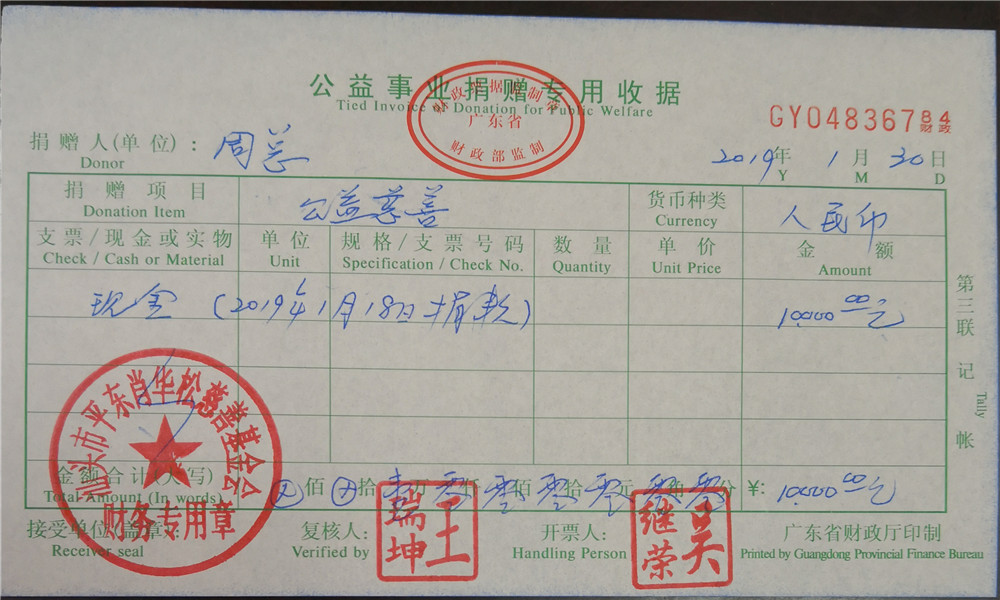 公益事业捐赠专用收据
Tied Invoice of Donation for Public Welfare
广东省
财政部监制
GY04836784
财政
捐赠人(单位): 周总
Donor
2019年 1月 30日
Y M D
捐赠项目 公益慈善 货币种类 人民币
Donation Item Currency
支票/现金或实物 单位 规格/支票号码 数量 单价 金额
Check / Cash or Material Unit Specification / Check No. Quantity Unit Price Amount
现金 (2019年1月18日捐款) 10000.00元
第三联 记帐
Tally
汕头市平东肖华松慈善基金会
财务专用章
金额合计(大写) 佰 拾 万 零 仟 零 佰 零 拾 零 元 零 角 零 分 ¥: 10000.00元
Total Amount (In words)
接受单位(盖章): 复核人: 王瑞坤 开票人: 吴继荣 广东省财政厅印制
Receiver seal Verified by Handling Person Printed by Guangdong Provincial Finance Bureau